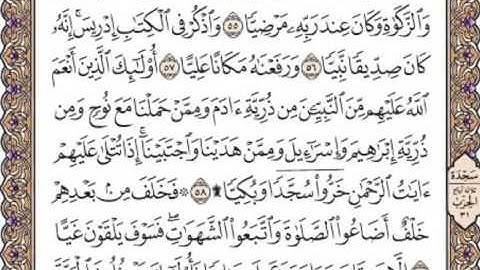 وَٱلزَّكَوٰةِ وَكَانَ عِندَ رَبِّهِۦ مَرْضِيًّا ٥٥ وَٱذْكُرْ فِى ٱلْكِتَٰبِ إِدْرِيسَ ۚ إِنَّهُۥ
كَانَ صِدِّيقًا نَّبِيًّا ٥٦ وَرَفَعْنَٰهُ مَكَانًا عَلِيًّا ٥٧ أُو۟لَٰٓئِكَ ٱلَّذِينَ أَنْعَمَ
ٱللَّهُ عَلَيْهِم مِّنَ ٱلنَّبِيِّـۧنَ مِن ذُرِّيَّةِ ءَادَمَ وَمِمَّنْ حَمَلْنَا مَعَ نُوحٍ وَمِن
ذُرِّيَّةِ إِبْرَٰهِيمَ وَإِسْرَٰٓءِيلَ وَمِمَّنْ هَدَيْنَا وَٱجْتَبَيْنَآ ۚ إِذَا تُتْلَىٰ عَلَيْهِمْ
ءَايَٰتُ ٱلرَّحْمَٰنِ خَرُّوا۟ سُجَّدًا وَبُكِيًّا ۩ ٥٨ ۞ فَخَلَفَ مِنۢ بَعْدِهِمْ
خَلْفٌ أَضَاعُوا۟ ٱلصَّلَوٰةَ وَٱتَّبَعُوا۟ ٱلشَّهَوَٰتِ ۖ فَسَوْفَ يَلْقَوْنَ غَيًّا
سَجْدَة
الحِزْب
٣١